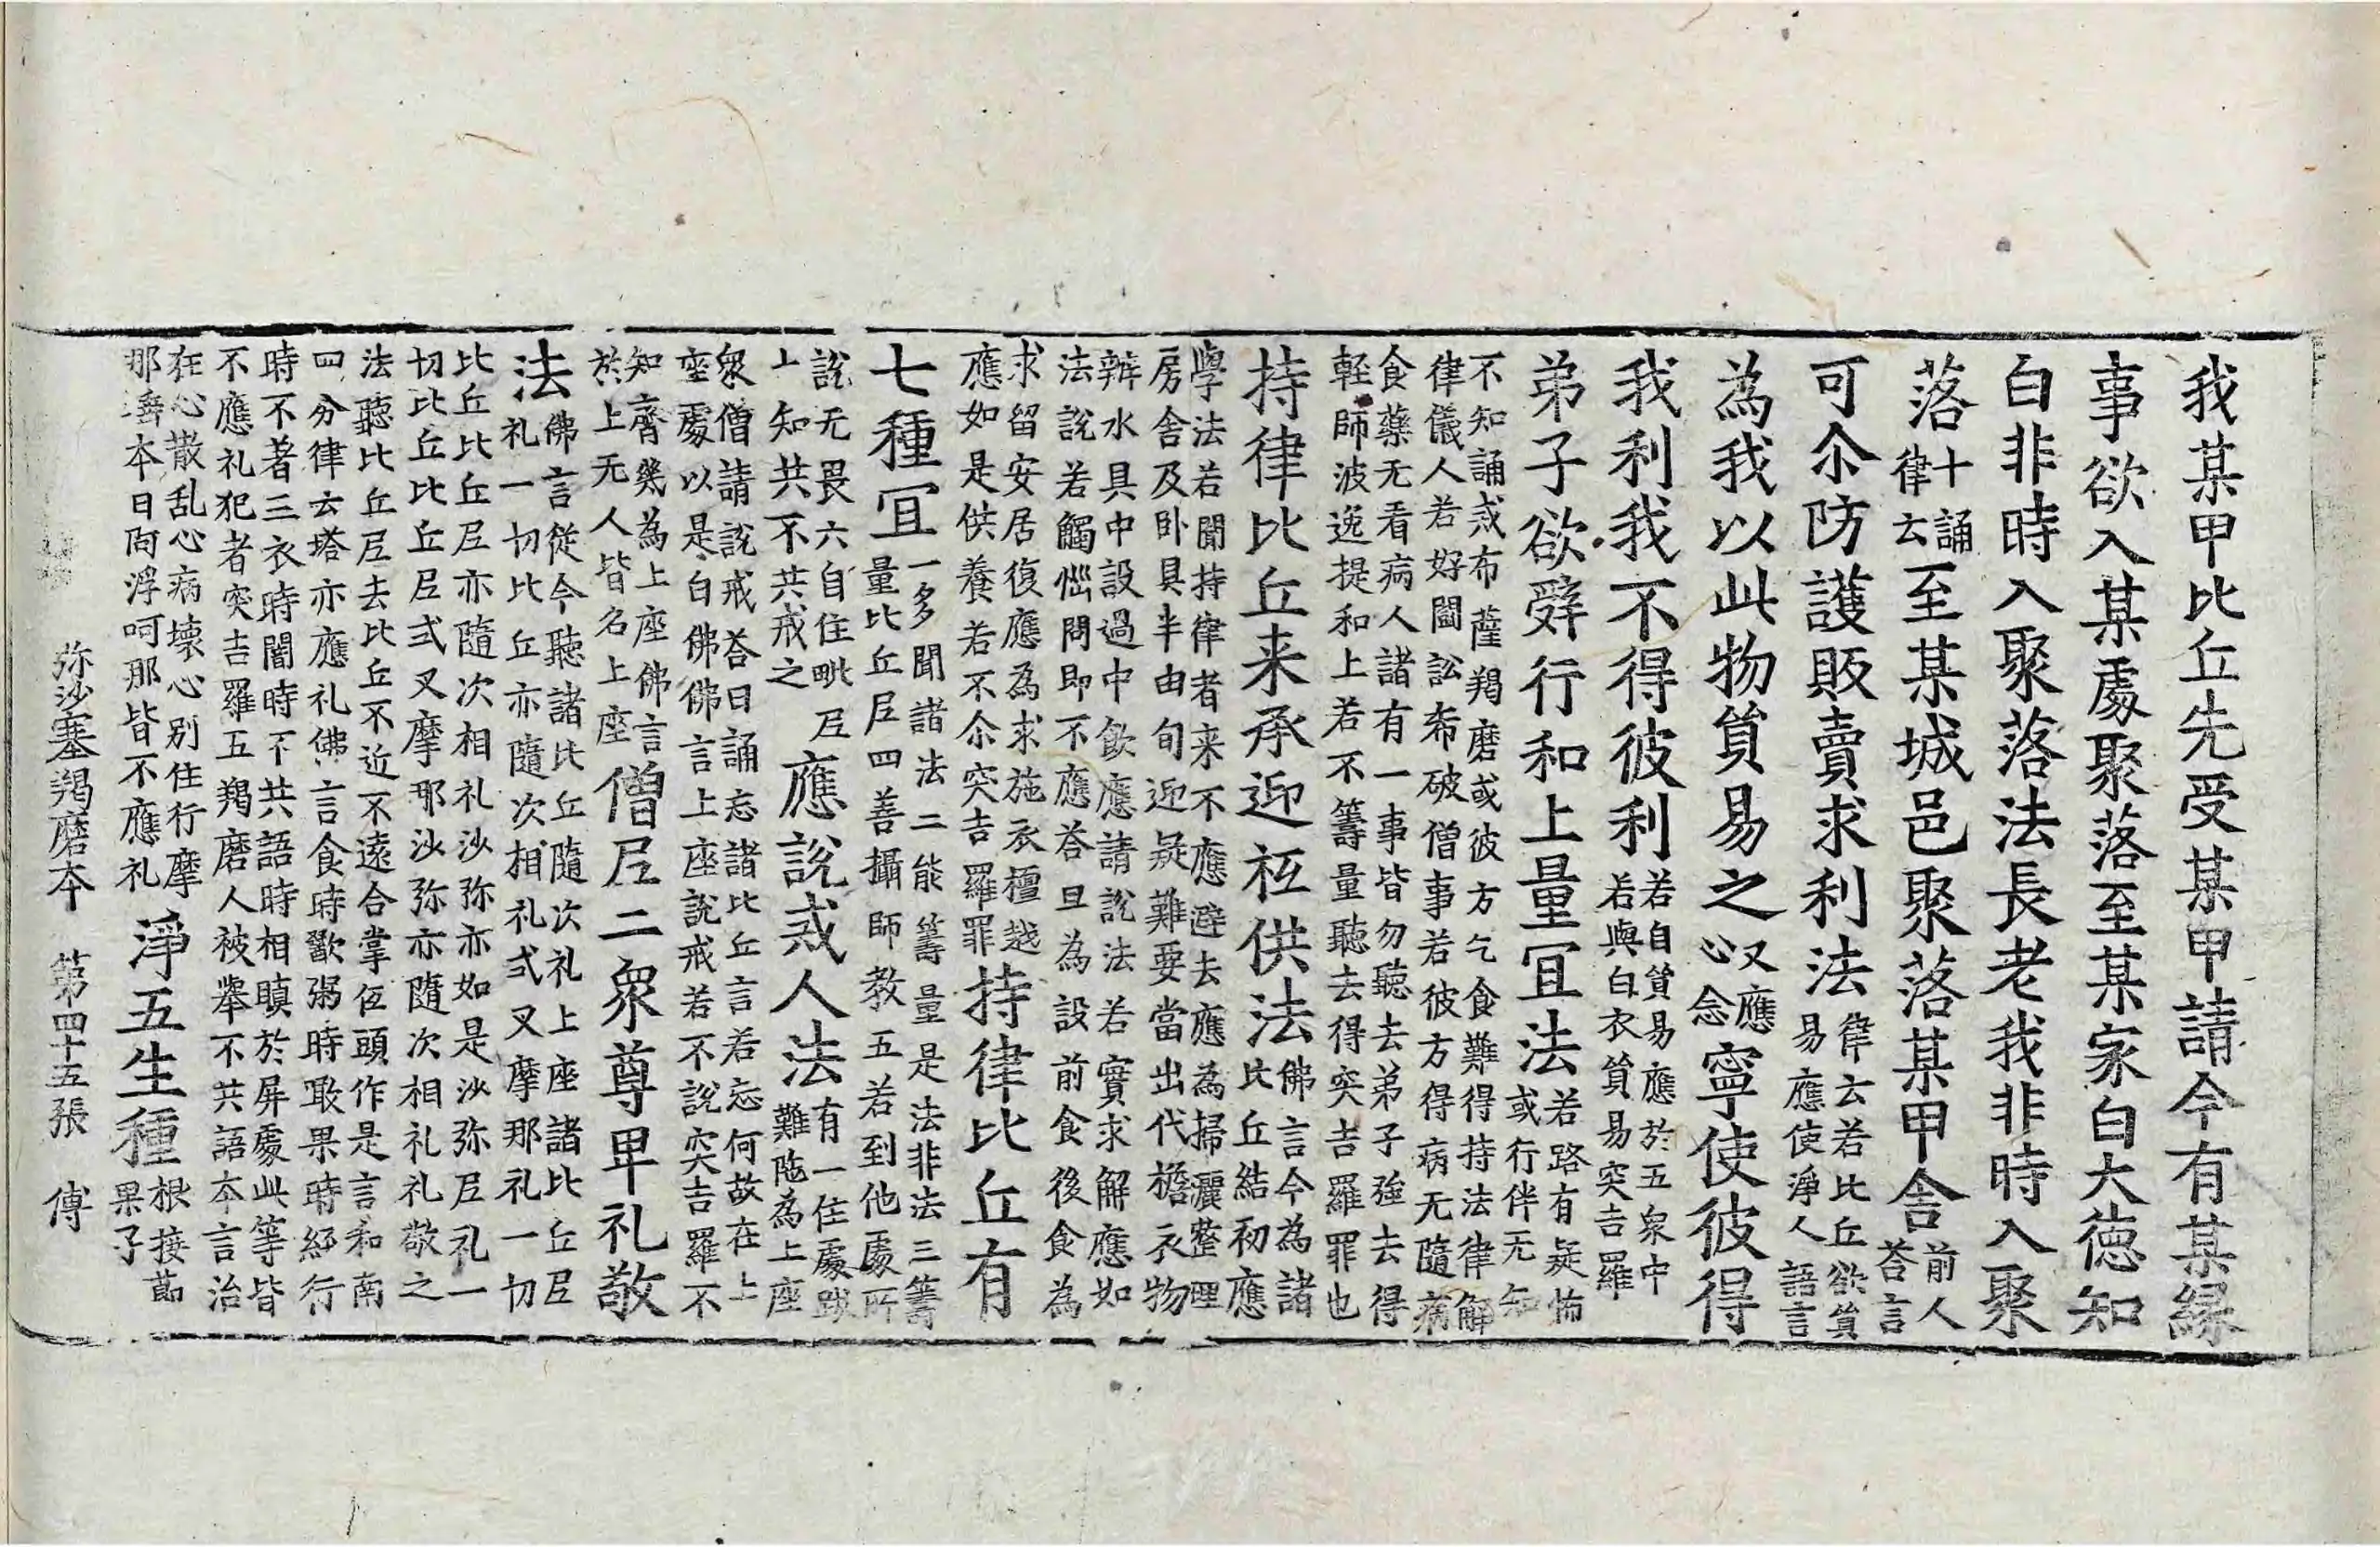 我某甲比丘先受某甲請今有某縁
事欲入某處聚落至某家白大德知
白非時入聚落法長老我非時入聚
落十誦律云至某城邑聚落某甲舍前人答言
可尒防護販賣求利法律云若比丘欲貿易應使淨人語言
為我以此物貿易之又應心念寧使彼得
我利我不得彼利若自貿易應於五衆中若與白衣貿易突吉羅
弟子欲辝行和上量冝法若路有疑怖或行伴无知
不知誦戒布薩羯磨或彼方乞食難得持法律解
律儀人若好鬪訟希破僧事若彼方得病无隨病
食藥无看病人諸有一事皆勿聽去弟子強去得
輕師波逸提和上若不籌量聽去得突吉羅罪也
持律比丘来承迎祗供法佛言今為諸比丘結初應
學法若聞持律者来不應避去應為掃灑整理
房舍及卧具半由旬迎疑難要當出代擔衣物
辦水具中設過中飲應請說法若實求解應如
法說若觸惱問即不應荅旦為設前食後食為
求留安居復應為求施衣檀越
應如是供養若不尒突吉羅罪持律比丘有
七種冝一多聞諸法二能籌量是法非法三籌量比丘尼四善攝師教五若到他處所
說无畏六自住毗尼
上知共不共戒之應說戒人法有一住處跋難陁為上座
衆僧請說戒荅曰誦忘諸比丘言若忘何故在上
座處以是白佛佛言上座說戒若不說突吉羅不
知齊幾為上座佛言
於上无人皆名上座僧尼二衆尊卑礼敬
法佛言從今聽諸比丘隨次礼上座諸比丘尼礼一切比丘亦隨次相礼式叉摩那礼一切
比丘比丘尼亦隨次相礼沙弥亦如是沙弥尼礼一
切比丘比丘尼式叉摩那沙弥亦隨次相礼礼敬之
法聽比丘尼去比丘不近不遠合掌伍頭作是言和南
四分律云塔亦應礼佛言食時歠粥時噉果時經行
時不著三衣時闇時不共語時相瞋於屏處此等皆
不應礼犯者突吉羅五羯磨人被舉不共語夲言治
狂心散乱心病壞心別住行摩
那埵本日阿浮呵那皆不應礼淨五生種根接莭果子
弥沙塞羯磨夲 第四十五張 傅